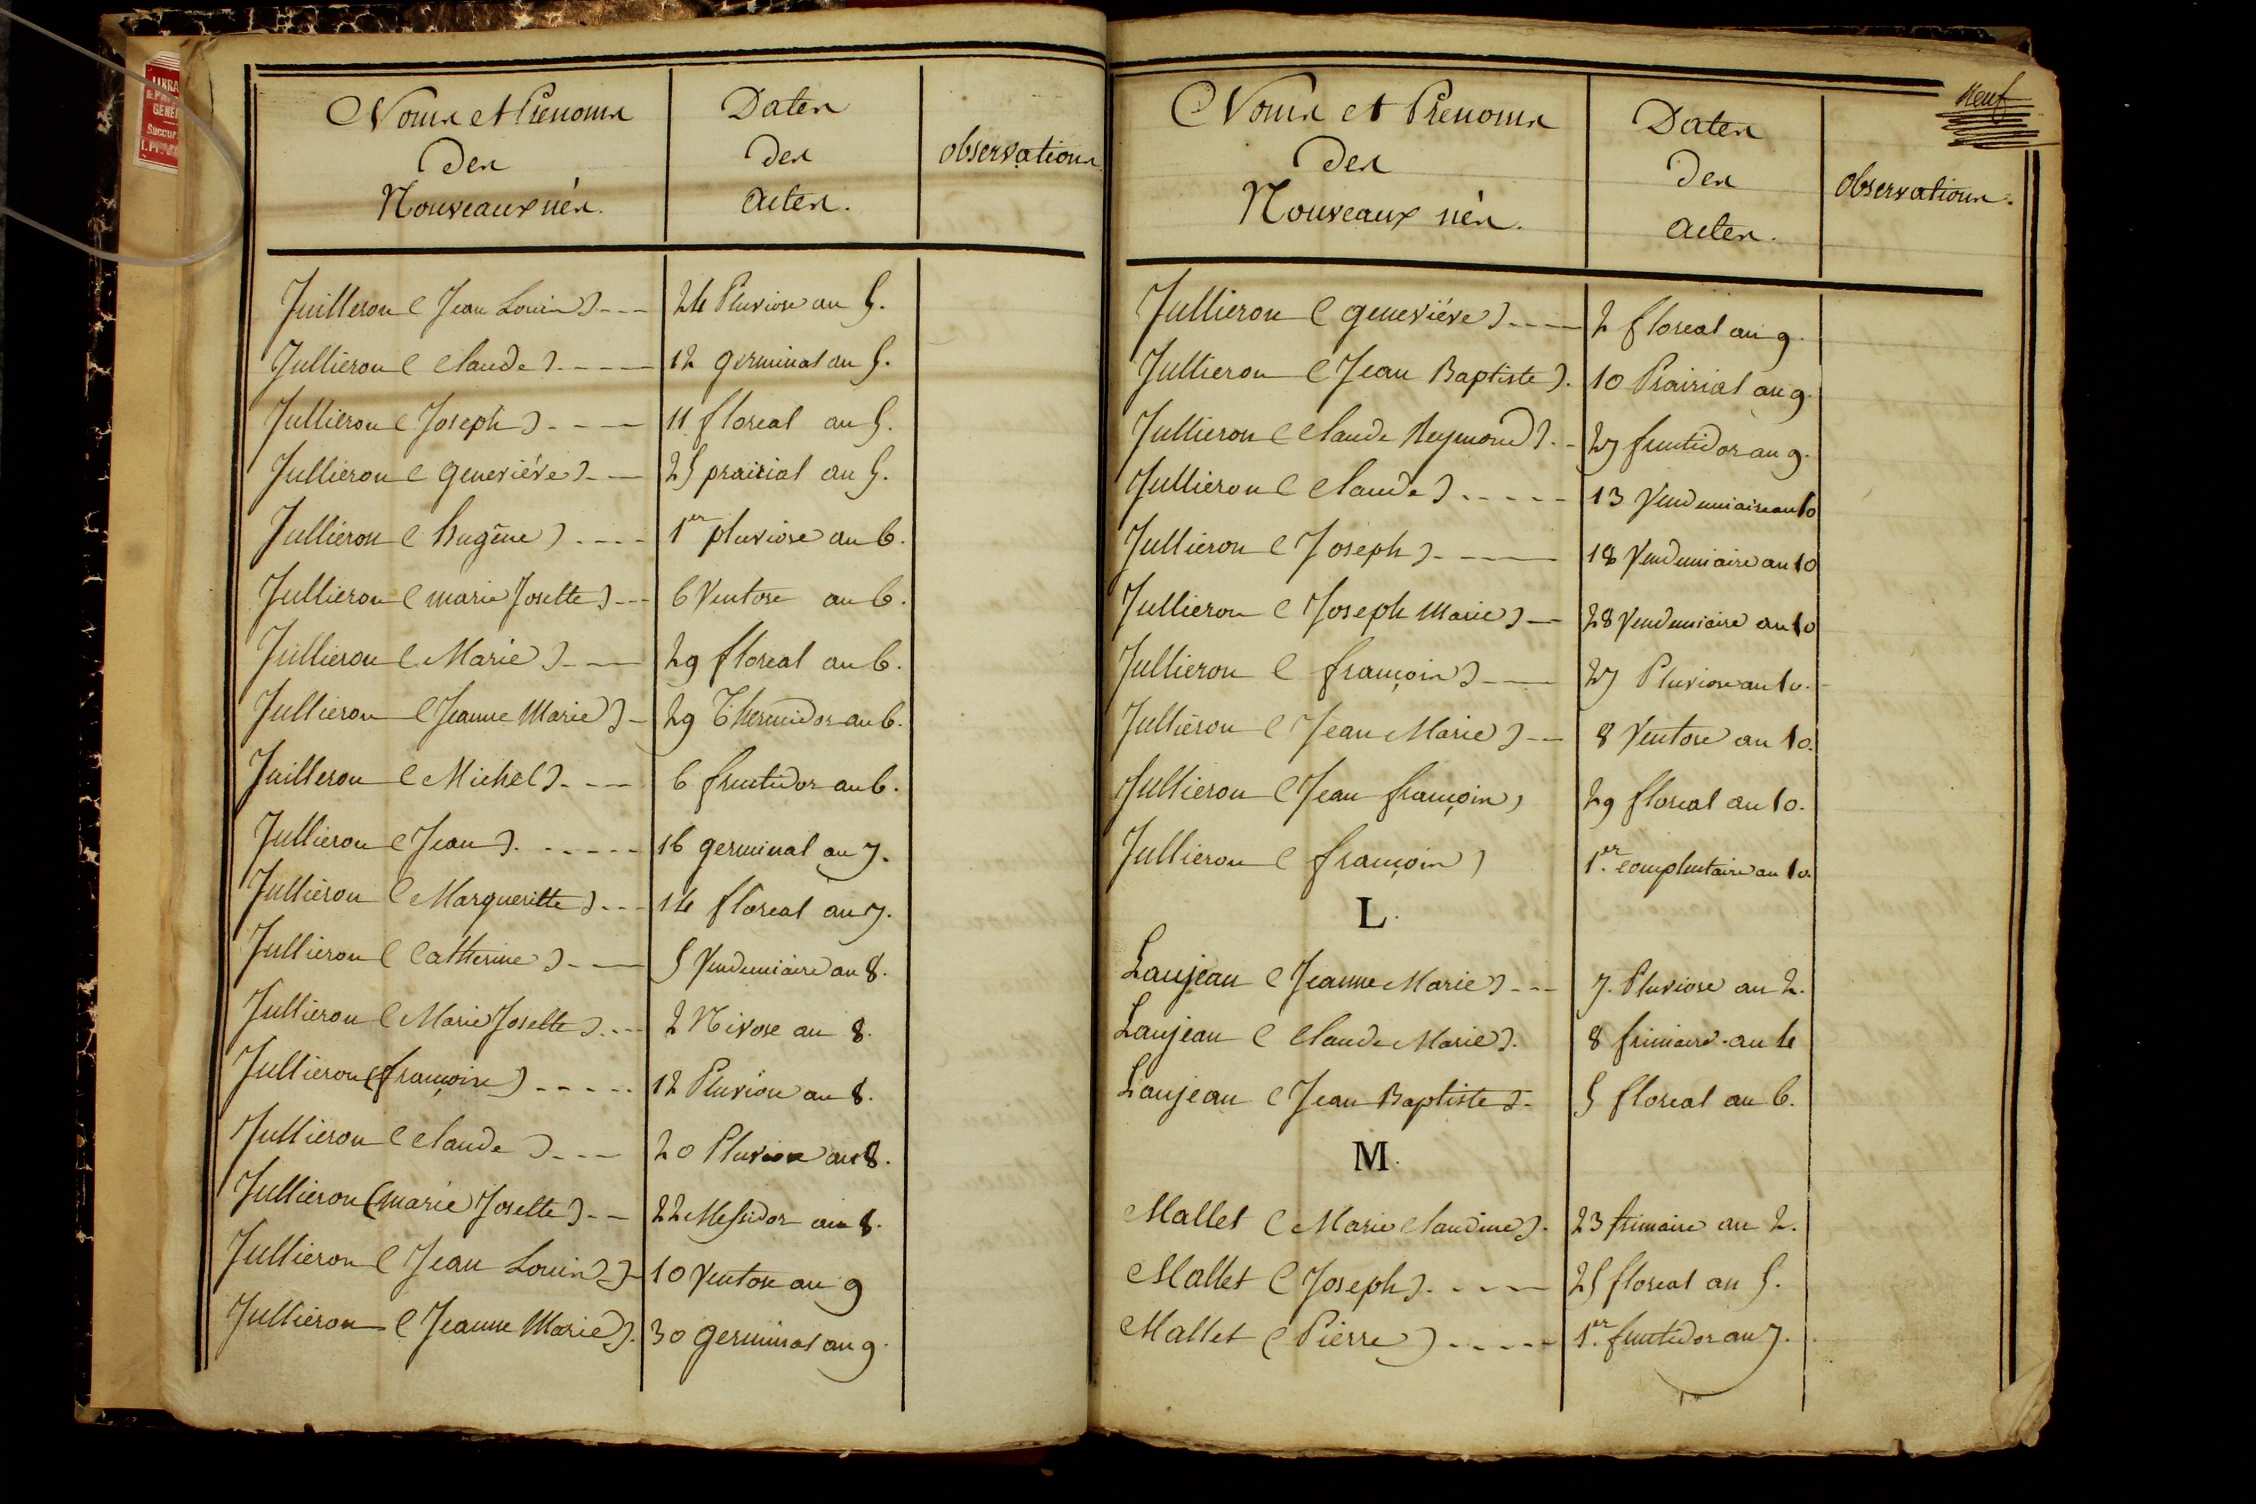 Noms et Prenoms
Des
Nouveaux nés.
Dates
Des
actes.
observations
Juilleron (Jean Louis) --- 24 Pluviose an 5.
Jullieron (Claude) ---- 12 germinal an 5.
Jullieron (Joseph) ---- 11 floreal an 5.
Jullieron (geneviéve) --- 25 prairial an 5.
Jullieron (hugéne) ---- 1er pluviose an 6.
Jullieron (marie Josette) --- 6 Ventose an 6.
Jullieron (Marie) ---- 29 floreal an 6.
Jullieron (Jeanne Marie) - 29 Thermidor an 6.
Juilleron (Michel) ---- 6 fructidor an 6.
Jullieron (Jean) ----- 16 germinal an 7.
Jullieron (Margueritte) --- 14 floreal an 7.
Jullieron (Catherine) --- 5 Vendemiaire an 8.
Jullieron (Marie Josette) --- 2 Nivose an 8.
Jullieron (françoise) ----- 12 Pluviose an 8.
Jullieron (Claude) --- 20 Pluviose an 8.
Jullieron (marie Josette) -- 22 Messidor an 8.
Jullieron (Jean Louis) - 10 Ventose an 9
Jullieron (Jeanne Marie). 30 germinal an 9.
neuf
Noms et Prenoms
Des
Nouveaux nés.
Dates
Des
actes.
observations.
Jullieron (geneviéve) ---- 2 floreal an 9.
Jullieron (Jean Baptiste). 10 Prairial an 9.
Jullieron (Claude Reymond) -- 27 fructidor an 9.
Jullieron (Claude) ----- 13 Vendemiaire an 10
Jullieron (Joseph) ---- 18 Vendemiaire an 10
Jullieron (Joseph Marie) -- 28 Vendemiaire an 10
Jullieron (françois) --- 27 Pluviose an 10.
Jullieron (Jean Marie) -- 8 Ventose an 10.
Jullieron (Jean françois) 29 floreal an 10.
Jullieron (françois) 1er. complmtaire an 10.
L.
Laujeau (Jeanne Marie) --- 7. Pluviose an 2.
Laujeau (Claude Marie). 8 frimaire an 4
Laujeau (Jean Baptiste). 5 floreal an 6.
M.
Mallet (Marie Claudine). 23 frimaire an 2.
Mallet (Joseph) ---- 25 floreal an 5.
Mallet (Pierre) ----- 1er. fructidor an 7.